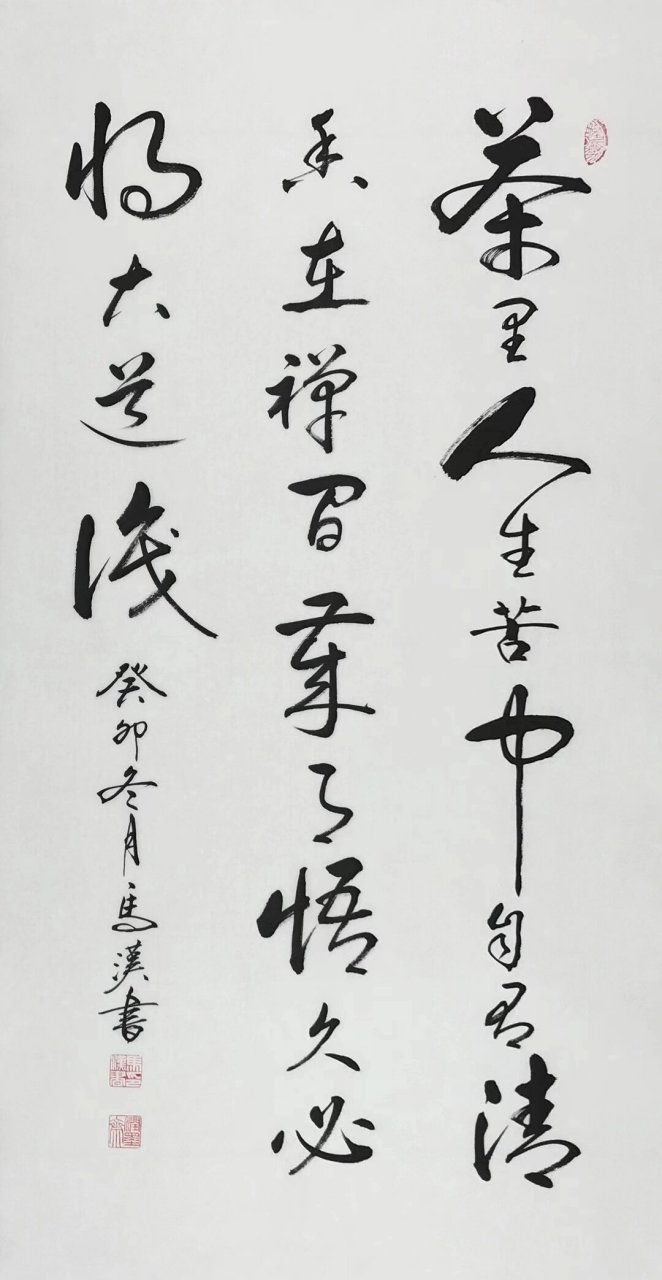 茶里人生苦中自有清
香在禅間了悟久必
将大道識
癸卯冬月馬漢書